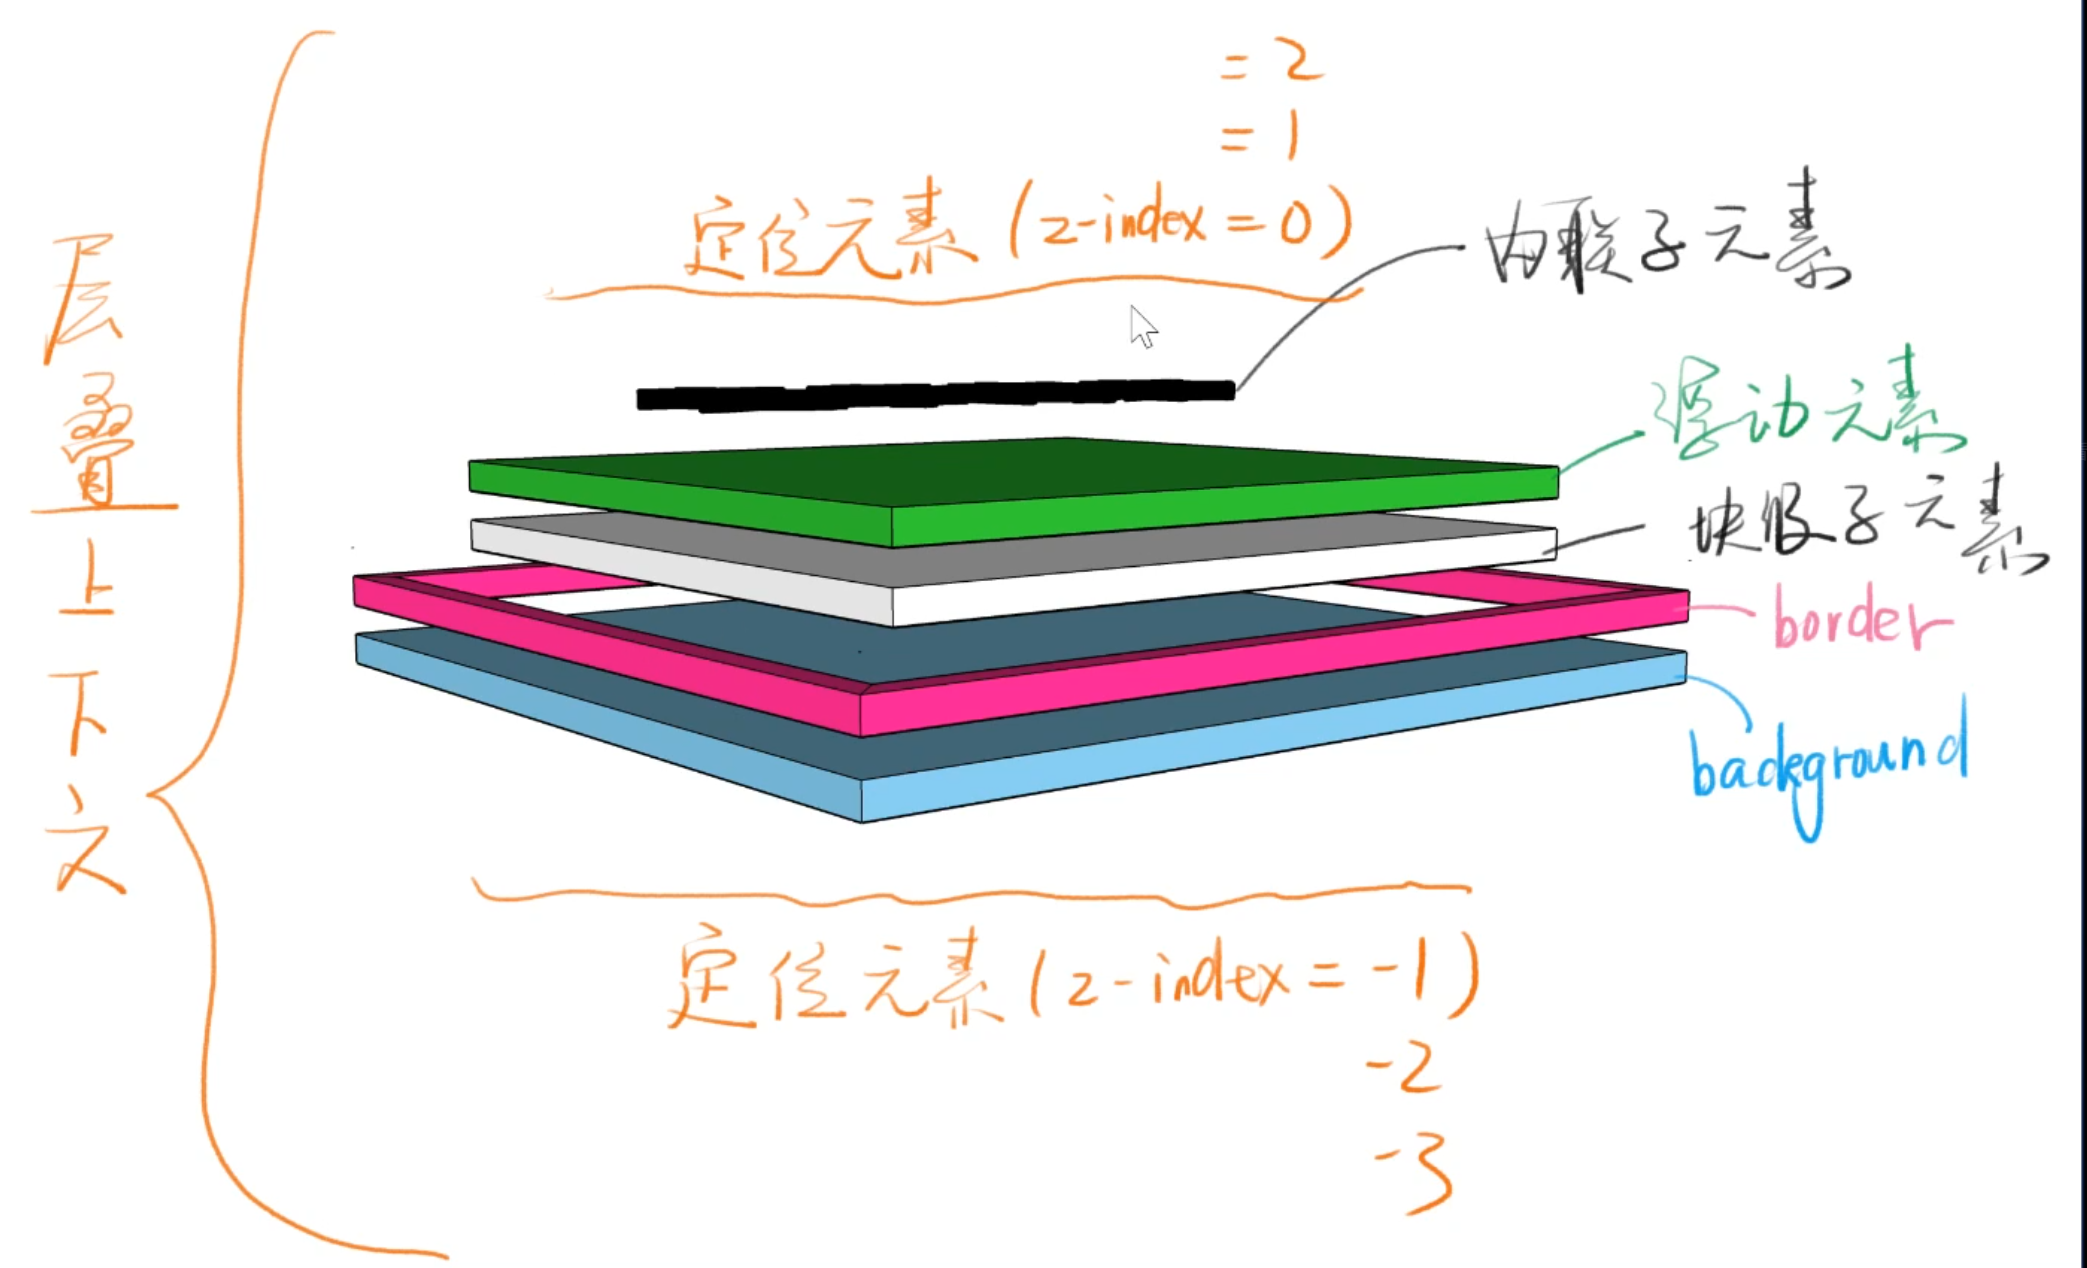 = 2
= 1
定位元素 (z-index = 0)
内联子元素
浮动元素
块级子元素
border
background
层叠上下文
定位元素 (z-index = -1)
-2
-3